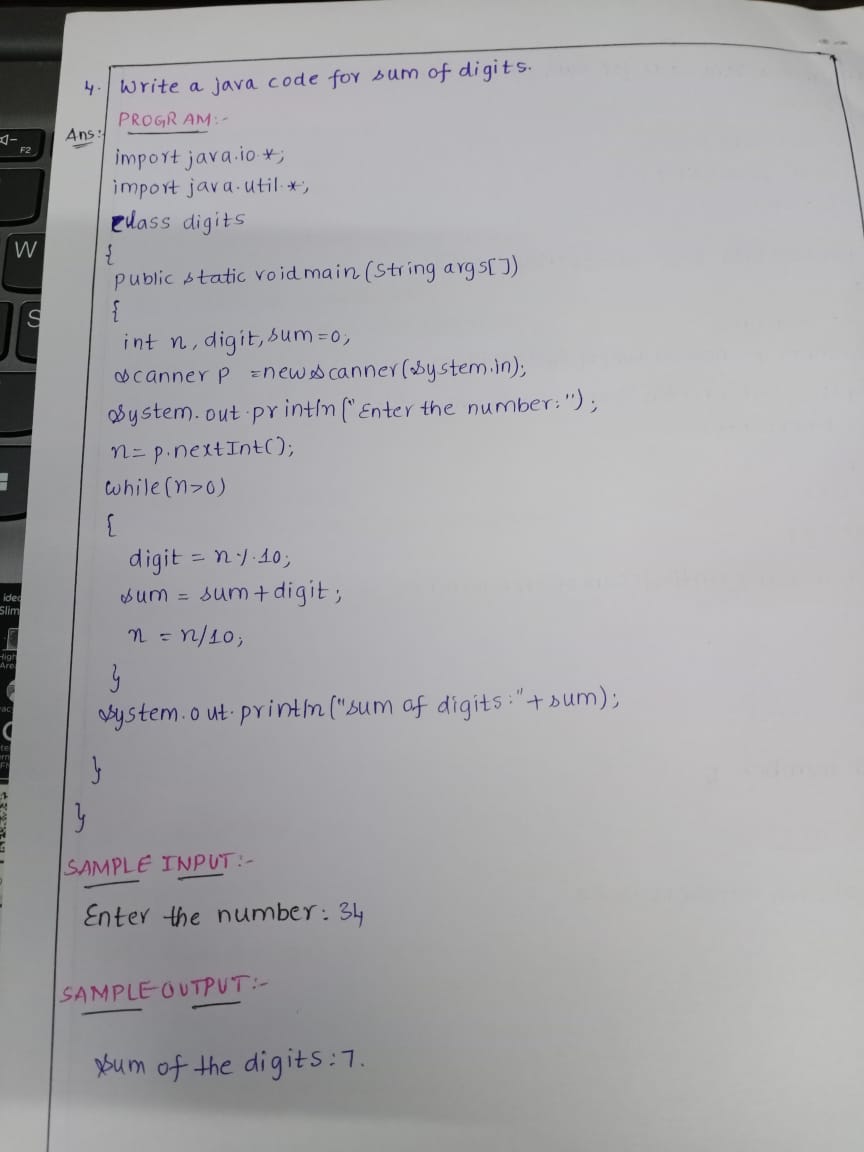 4. Write a java code for sum of digits.
PROGRAM:-
Ans:-
import java.io.*;
import java.util.*;
class digits
{
public static void main (String args[])
{
int n, digit, sum=0;
Scanner p =new Scanner(System.in);
System.out.println("Enter the number:");
n= p.nextInt();
while(n>0)
{
digit = n%10;
sum = sum+digit;
n = n/10;
}
System.out.println("sum of digits:"+sum);
}
}
SAMPLE INPUT:-
Enter the number: 34
SAMPLE OUTPUT:-
Sum of the digits:7.
F2
W
S
idea
Slim
High